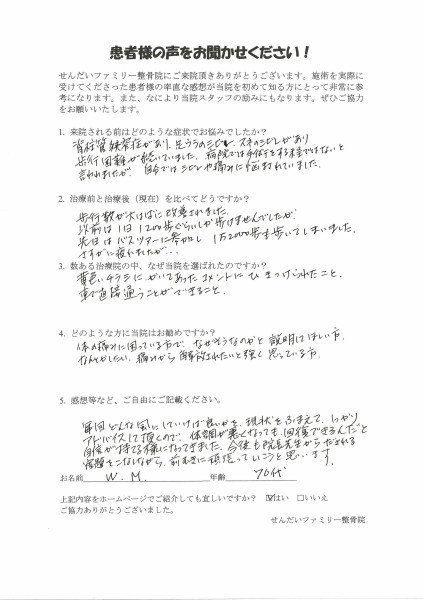 患者様の声をお聞かせください！
せんだいファミリー整骨院にご来院頂きありがとうございます。施術を実際に
受けてくださった患者様の率直な感想が当院を初めて知る方にとって非常に参
考になります。また、なにより当院スタッフの励みにもなります。ぜひご協力
をお願いいたします。
1. 来院される前はどのような症状でお悩みでしたか？
脊柱管狭窄症があり、足うらのシビレ、スネのシビレがあり
歩行困難が続いていました。病院では手術をする程ではないと
言われましたが、自分ではシビレや痛みに悩まされていました。
2. 治療前と治療後（現在）を比べてどうですか？
歩行数が大はばに改善されました。
以前は1日1200歩ぐらいしか歩けませんでしたが、
先日はバスツアーに参加し 1万2000歩も歩いてしまいました。
さすがに疲れましたが…
3. 数ある治療院の中、なぜ当院を選ばれたのですか？
黄色いチラシにかいてあったコメントにひきつけられたこと。
車で直接通うことができること。
4. どのような方に当院はお勧めですか？
体の痛みに困っている方で、なぜそうなのかと説明してほしい方。
なんとかしたい、痛みから解放されたいと強く思っている方。
5. 感想等など、ご自由にご記載ください。
毎回どんな気にしていけば良いかを、現状をふまえて、しっかり
アドバイスして頂くので、体調が悪くなっても、回復できるんだと
自信が持てる様になってきました。今後も院長先生からだされる
宿題をこなしながら、前むきに頑張っていこうと思います。
お名前 W. M. 年齢 70代
上記内容をホームページでご紹介しても宜しいですか？ ☑はい □いいえ
ご協力ありがとうございました。
せんだいファミリー整骨院